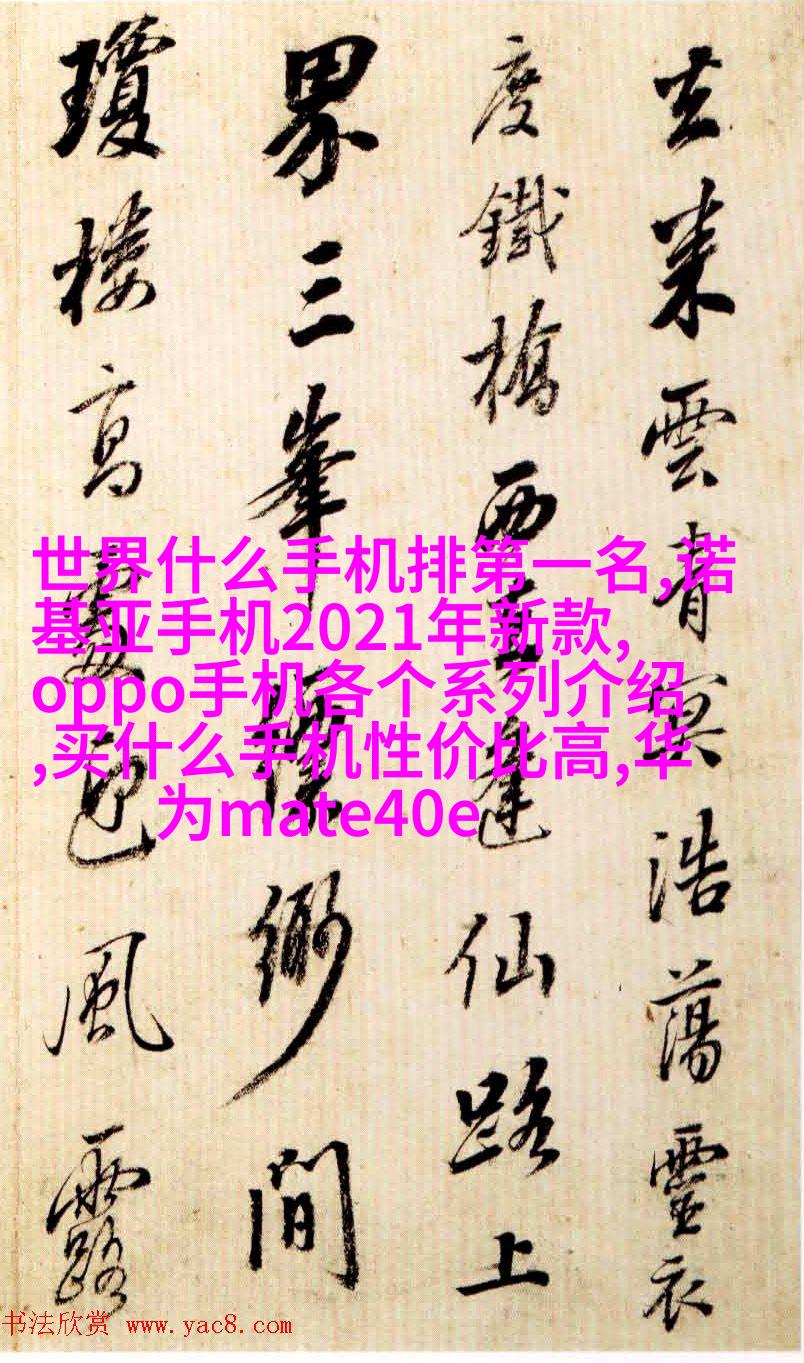 去来雲青冥浩蕩靈衣
度鐵橋西王逢仙路上
界三峯
衡間
瓊樓高處風露
世界什么手机排第一名,诺
基亚手机2021年新款,
oppo手机各个系列介绍
,买什么手机性价比高,华
为mate40e
书法欣赏 www.yac8.com